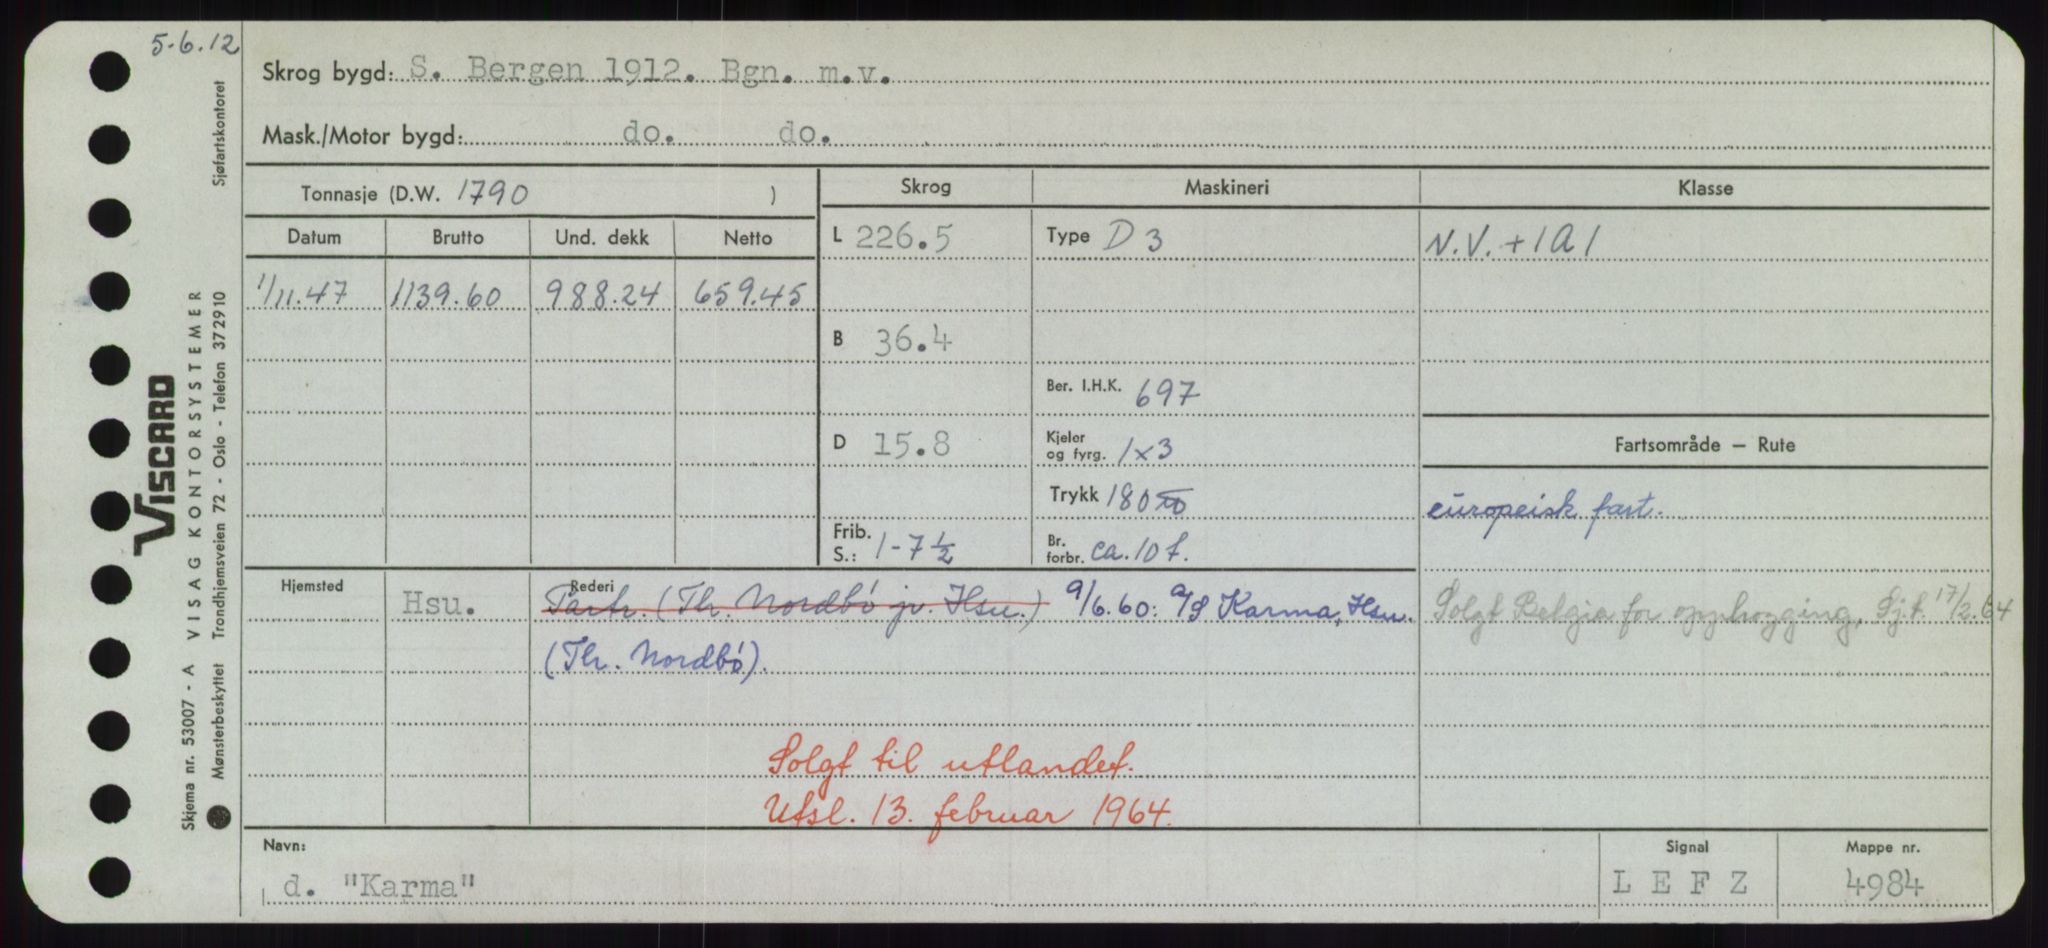 5.6.12
Skrog bygd: S. Bergen 1912. Bgn. m.v.
Mask./Motor bygd: do. do.
Tonnasje (D.W. 1790 )
Skrog
Maskineri
Klasse
Datum Brutto Und. dekk Netto
1/11.47 1139.60 988.24 659.45
L 226.5
B 36.4
D 15.8
Frib. S.: 1-7½
Type D 3
Ber. I.H.K. 697
Kjeler og fyrg. 1x3
Trykk 180
Br. forbr. ca. 10 t.
N.V. + 1A1
Fartsområde — Rute
europeisk fart.
Solgt Belgia for opphogging, Sj.f. 17/2.64
Hjemsted
Hsu.
Rederi
Partr. (Th. Nordbö jr. Hsu.) 9/6.60: A/S Karma, Hsu.
(Th. Nordbö).
Solgt til utlandet.
Utsl. 13. februar 1964.
Navn:
d. "Karma"
Signal
L E F Z
Mappe nr.
4984
VISCARD
Skjema nr. 53007 - A VISAG KONTORSYSTEMER
Mønsterbeskyttet Trondhjemsveien 72 - Oslo - Telefon 372910
Sjøfartskontoret